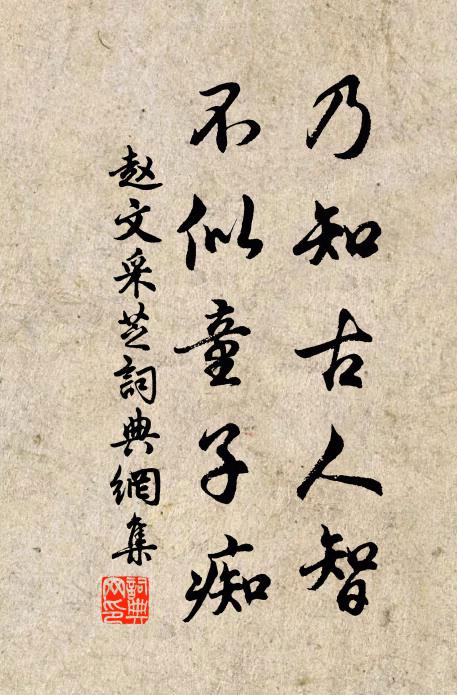 乃知古人智
不似童子痴
赵文采芝詞典網集
詞典網印